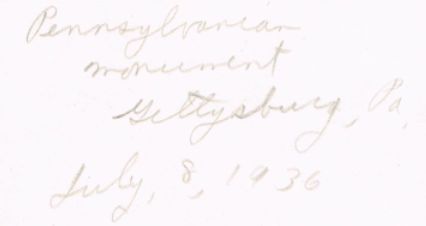 Pennsylvanian
monument
Gettysburg, Pa.
July, 8, 1936